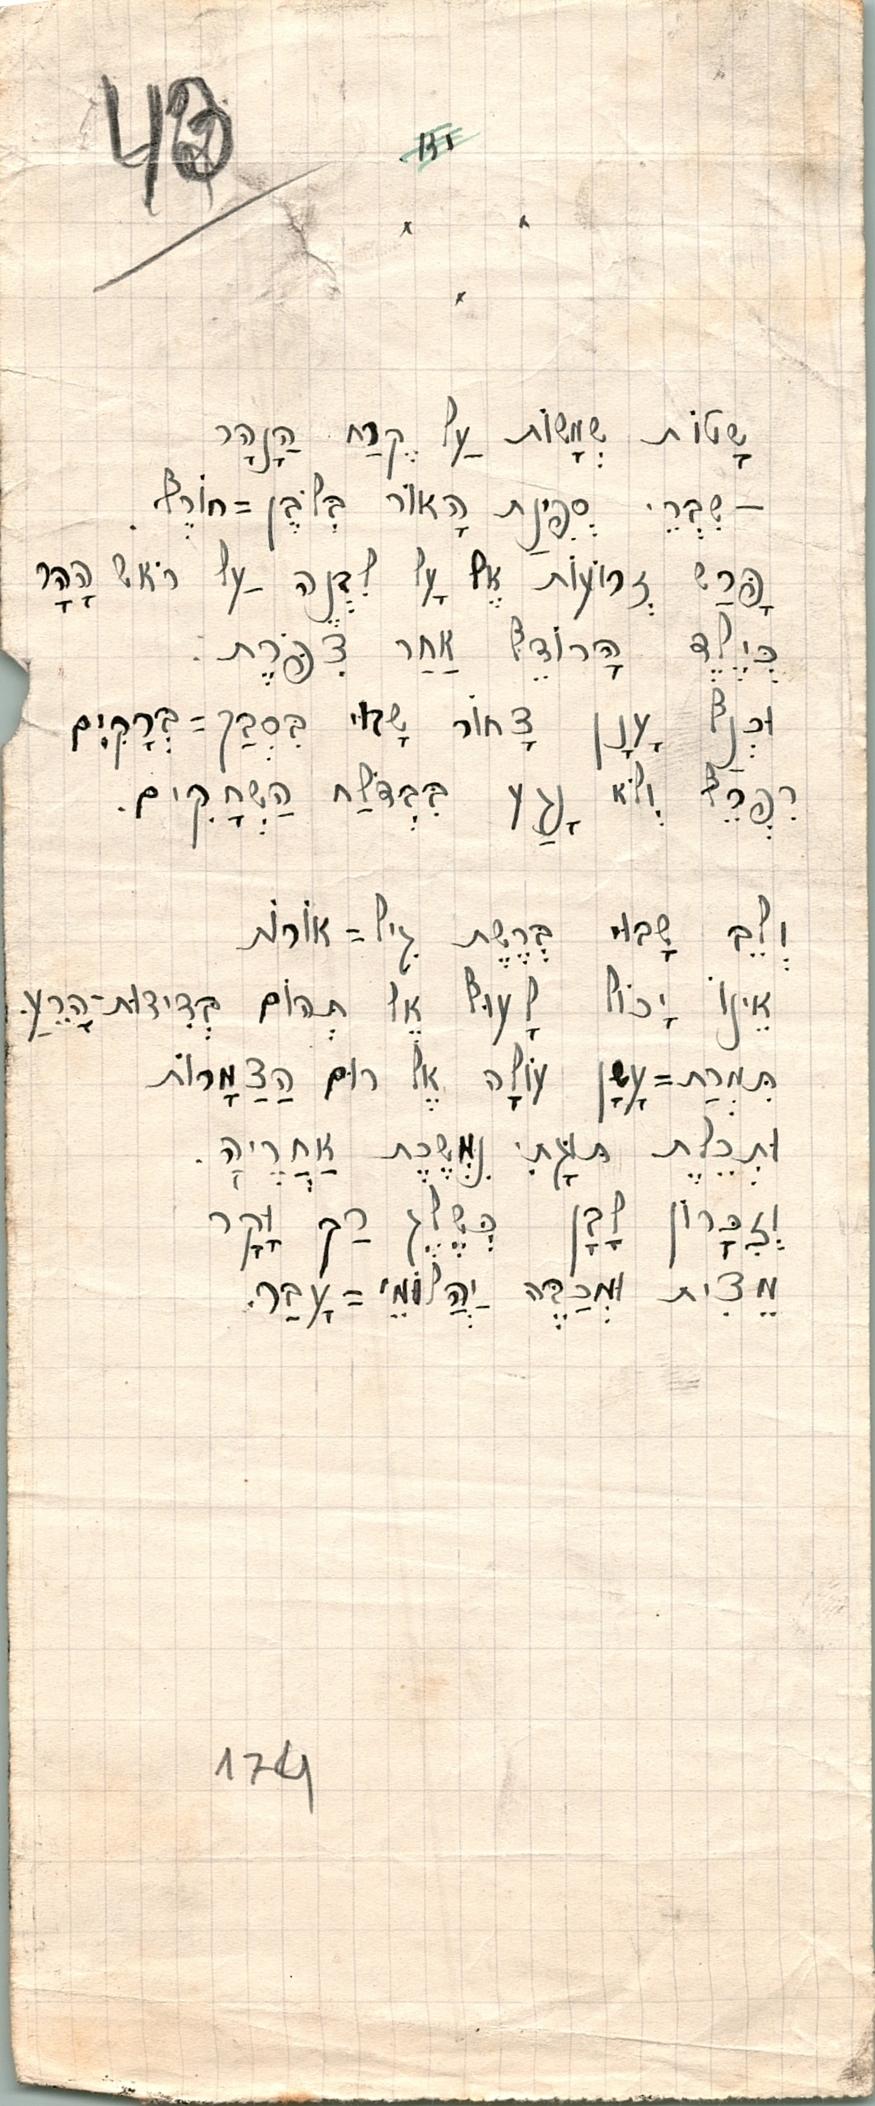 43
שָׁטוֹת שְׁמָשׁוֹת עַל קֶרַח הַנָּהָר
– שִׁבְרֵי סְפִינַת הָאוֹר בְּלֹבֶן=חוֹרֶף.
פָּרַשׂ זְרוֹעוֹת אֶל עָל לִבְנֶה עַל רֹאשׁ הָהָר
כְּיֶלֶד הָרוֹדֵף אַחַר צִפֹּרֶת.
וּכְנַף עָנָן צָחוֹר שָׁבוּי בִּסְבַךְ=בְּרָקִים
רִפְרֵף וְלֹא נָגַע בִּבְדֹלַח הַשְּׁחָקִים.
וְלֵב שָׁבוּי בְּרֶשֶׁת גִיל=אוֹרוֹת
אֵינוֹ יָכוֹל לָעוּף אֶל תְּהוֹם בְּדִידוּת-הָרֵעַ.
תִּמְרַת=עָשָׁן עוֹלָה אֶל רוּם הַצַּמָּרוֹת
וּתְכֵלֶת תּוּגָתִי נִמְשֶׁכֶת אַחֲרֶיהָ.
וְזִכָּרוֹן לָבָן כְּשֶׁלֶג רַךְ וָקָר
מֵצִית וּמְכַבֶּה יַהֲלוֹמֵי=עָבַר.
174